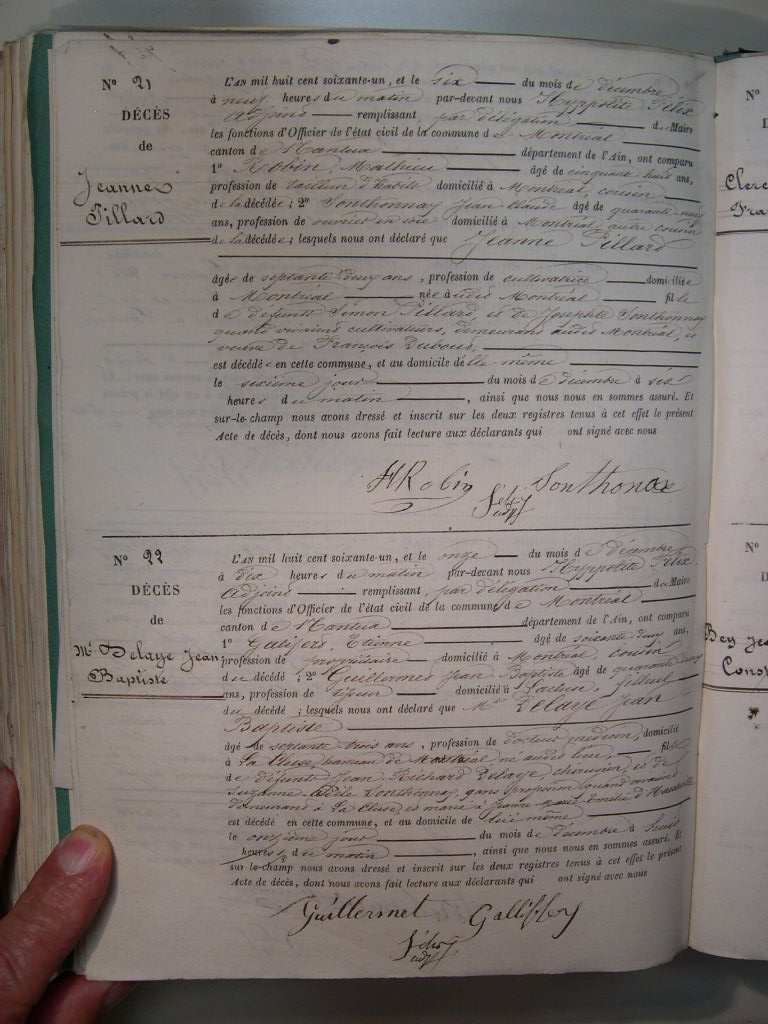 N° 21
DÉCÈS
de
Jeanne
Pillard
L'AN mil huit cent soixante-un, et le six du mois de décembre
à neuf heures du matin par-devant nous Hyppolite Félix
Adjoint remplissant par délégation de Maire
les fonctions d'Officier de l'état civil de la commune de Montréal
canton de Nantua département de l'Ain, ont comparu
1° Robin, Mathieu âgé de cinquante huit ans,
profession de tailleur d'habits domicilié à Montréal, cousin
de la décédée ; 2° Sonthonnax Jean Claude âgé de quarante
ans, profession de ouvrier en domicilié à Montréal, autre cousin
de la décédée ; lesquels nous ont déclaré que Jeanne Pillard
âgée de septante deux ans, profession de cultivatrice domiciliée
à Montréal née audit Montréal fille
de défunts Simon Pillard, et de Josephte Sonthonnax
quand vivaient cultivateurs, demeurans audit Montréal, et
veuve de François Dubout
est décédée en cette commune, et au domicile d'elle même
le sixième jour du mois de décembre à six
heures du matin, ainsi que nous nous en sommes assuré. Et
sur-le-champ nous avons dressé et inscrit sur les deux registres tenus à cet effet le présent
Acte de décès, dont nous avons fait lecture aux déclarants qui ont signé avec nous
Robin Sonthonax
Félix
adjt
N° 22
DÉCÈS
de
Mr Delaye Jean
Baptiste
L'AN mil huit cent soixante-un, et le onze du mois de décembre
à dix heures du matin par-devant nous Hyppolite Félix
Adjoint remplissant par délégation de Maire
les fonctions d'Officier de l'état civil de la commune de Montréal
canton de Nantua département de l'Ain, ont comparu
1° Etienne âgé de soixante deux ans,
profession de propriétaire domicilié à Montréal, cousin
du décédé ; 2° Guillermet Jean Baptiste âgé de quarante
ans, profession de domicilié à filleul
du décédé ; lesquels nous ont déclaré que Mr Delaye Jean
Baptiste
âgé de septante trois ans, profession de docteur médecin, domicilié
à La Cluse, hameau de Montréal, né audit lieu, fils
de défunts Jean Richard Delaye, et de
Suzanne Sonthonnax, sans profession, quand vivaient
demeurant à La Cluse, et marié à
est décédé en cette commune, et au domicile de lui même
le onzième jour du mois de décembre à
heures du matin, ainsi que nous nous en sommes assuré. Et
sur-le-champ nous avons dressé et inscrit sur les deux registres tenus à cet effet le présent
Acte de décès, dont nous avons fait lecture aux déclarants qui ont signé avec nous
Guillermet Galliffey
Félix
adjt
N°
Clerc
Fra
N°
Bey Jea
Const